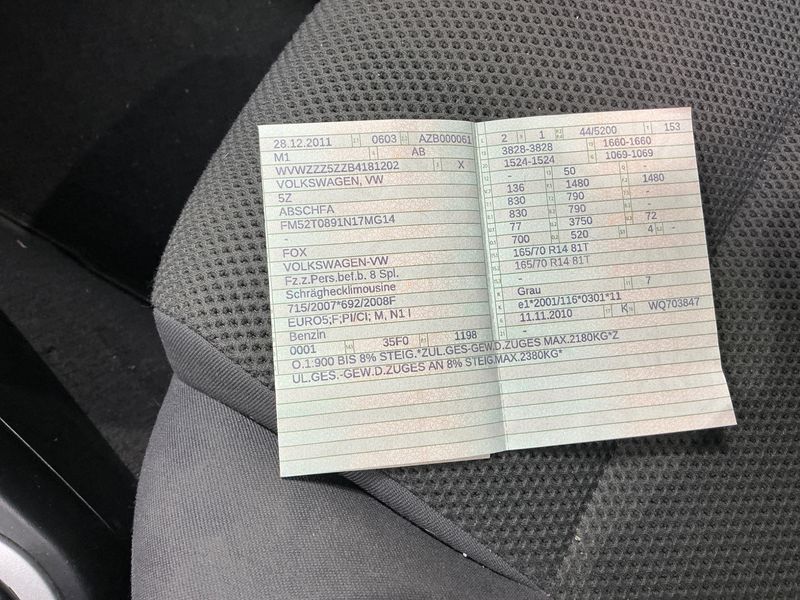 28.12.2011 0603 AZB000061
M1 AB
WVWZZZ5ZZB4181202 X
VOLKSWAGEN, VW
5Z
ABSCHFA
FM52T0891N17MG14
-
FOX
VOLKSWAGEN-VW
Fz.z.Pers.bef.b. 8 Spl.
Schräghecklimousine
715/2007*692/2008F
EURO5;F;PI/CI; M, N1 I
Benzin
0001 35F0 1198
2 1 44/5200 153
3828-3828 1660-1660
1524-1524 1069-1069
- 50 -
136 1480 1480
830 790 -
830 790 -
77 3750 72
700 520 4 -
165/70 R14 81T
165/70 R14 81T
-
Grau 7
e1*2001/116*0301*11
11.11.2010 K WQ703847
-
O.1:900 BIS 8% STEIG.*ZUL.GES-GEW.D.ZUGES MAX.2180KG*Z
UL.GES.-GEW.D.ZUGES AN 8% STEIG.MAX.2380KG*